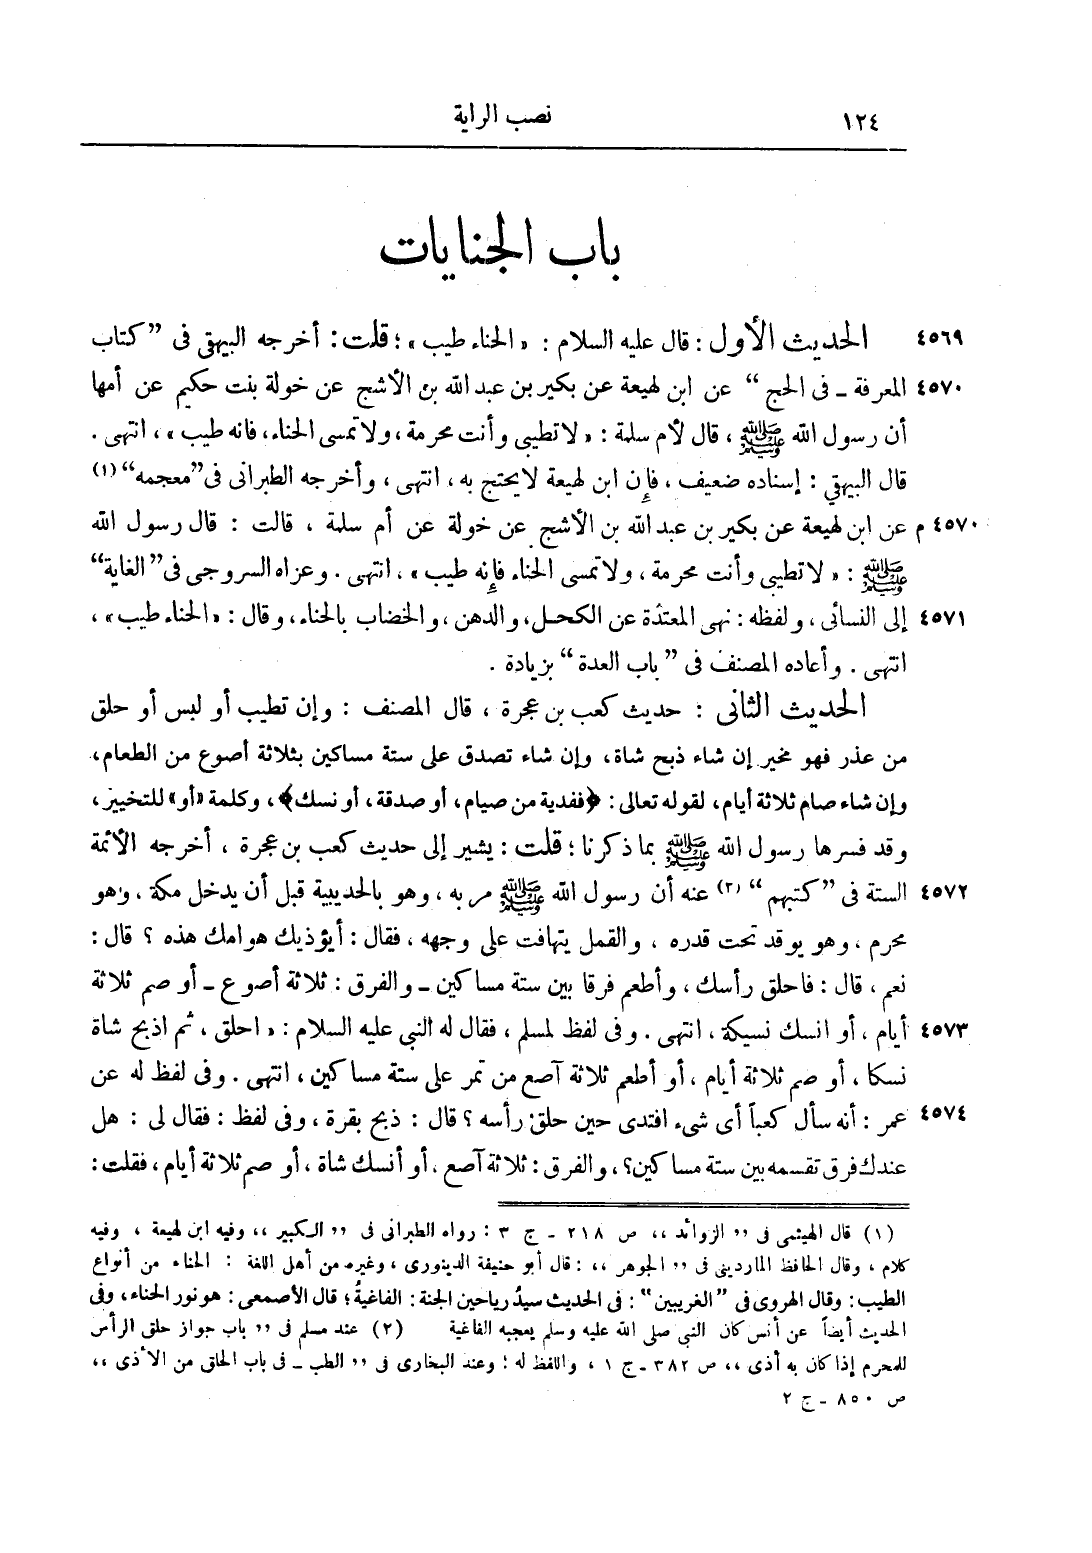 ١٢٤ نصب الراية
باب الجنايات
٤٥٦٩ الحديث الأول : قال عليه السلام : « الحناء طيب » ؛ قلت : أخرجه البيهقى فى ”كتاب
٤٥٧٠ المعرفة ـ فى الحج “ عن ابن لهيعة عن بكير بن عبد الله بن الأشج عن خولة بنت حكيم عن أمها
أن رسول الله ﷺ ، قال لأم سلمة : « لا تطيبى وأنت محرمة ، ولا تمسى الحناء ، فانه طيب » ، انتهى .
قال البيهقي : إسناده ضعيف ، فإن ابن لهيعة لا يحتج به ، انتهى ، وأخرجه الطبرانى فى ”معجمه“ (١)
٤٥٧٠ م عن ابن لهيعة عن بكير بن عبد الله بن الأشج عن خولة عن أم سلمة ، قالت : قال رسول الله
ﷺ : « لا تطيبى وأنت محرمة ، ولا تمسى الحناء فإنه طيب » ، انتهى . وعزاه السروجى فى ”الغاية“
٤٥٧١ إلى النسائى ، ولفظه : نهى المعتدة عن الكحل ، والدهن ، والخضاب بالحناء ، وقال : « الحناء طيب » ،
انتهى . وأعاده المصنف فى ” باب العدة “ بزيادة .
الحديث الثانى : حديث كعب بن عجرة ، قال المصنف : وإن تطيب أو لبس أو حلق
من عذر فهو مخير إن شاء ذبح شاة، وإن شاء تصدق على ستة مساكين بثلاثة أصوع من الطعام،
وإن شاء صام ثلاثة أيام، لقوله تعالى : ﴿ففدية من صيام، أو صدقة، أو نسك﴾، وكلمة «أو» للتخيير،
وقد فسرها رسول الله ﷺ بما ذكرنا ؛ قلت : يشير إلى حديث كعب بن عجرة ، أخرجه الأئمة
٤٥٧٢ الستة فى ”كتبهم“ (٢) عنه أن رسول الله ﷺ مر به ، وهو بالحديبية قبل أن يدخل مكة ، وهو
محرم ، وهو يوقد تحت قدره ، والقمل يتهافت على وجهه ، فقال : أيؤذيك هوامك هذه ؟ قال :
نعم ، قال : فاحلق رأسك ، وأطعم فرقا بين ستة مساكين ـ والفرق : ثلاثة أصوع ـ أو صم ثلاثة
٤٥٧٣ أيام ، أو انسك نسيكة ، انتهى . وفى لفظ لمسلم ، فقال له النبى عليه السلام : « احلق ، ثم اذبح شاة
نسكا ، أو صم ثلاثة أيام ، أو أطعم ثلاثة آصع من تمر على ستة مساكين ، انتهى . وفى لفظ له عن
٤٥٧٤ عمر : أنه سأل كعباً أى شىء افتدى حين حلق رأسه ؟ قال : ذبح بقرة ، وفى لفظ : فقال لى : هل
عندك فرق تقسمه بين ستة مساكين؟ ، والفرق : ثلاثة آصع ، أو أنسك شاة ، أو صم ثلاثة أيام ، فقلت :
(١) قال الهيثمى فى ,, الزوائد ،، ص ٢١٨ ـ ج ٣ : رواه الطبرانى فى ,, الكبير ،، وفيه ابن لهيعة ، وفيه
كلام ، وقال الحافظ الماردينى فى ,, الجوهر ،، : قال أبو حنيفة الدينورى ، وغيره من أهل اللغة : الحناء من أنواع
الطيب : وقال الهروى فى ”الغريبين“ : فى الحديث سيدُ رياحين الجنة : الفاغيةُ ؛ قال الأصمعى : هو نور الحناء، وفى
الحديث أيضاً عن أنس كان النبى صلى الله عليه وسلم يعجبه الفاغية (٢) عند مسلم فى ,, باب جواز حلق الرأس
للمحرم إذا كان به أذى ،، ص ٣٨٢ ـ ج ١ ، واللفظ له ؛ وعند البخارى فى ,, الطب ـ فى باب الحلق من الأذى ،،
ص ٨٥٠ ـ ج ٢